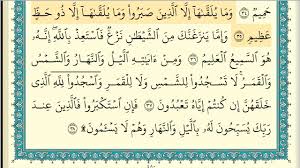 حَمِيمٌ ٣٤ وَمَا يُلَقَّىٰهَآ إِلَّا ٱلَّذِينَ صَبَرُوا۟ وَمَا يُلَقَّىٰهَآ إِلَّا ذُو حَظٍّ
عَظِيمٍ ٣٥ وَإِمَّا يَنزَغَنَّكَ مِنَ ٱلشَّيْطَٰنِ نَزْغٌ فَٱسْتَعِذْ بِٱللَّهِ إِنَّهُۥ
هُوَ ٱلسَّمِيعُ ٱلْعَلِيمُ ٣٦ وَمِنْ ءَايَٰتِهِ ٱلَّيْلُ وَٱلنَّهَارُ وَٱلشَّمْسُ
وَٱلْقَمَرُ لَا تَسْجُدُوا۟ لِلشَّمْسِ وَلَا لِلْقَمَرِ وَٱسْجُدُوا۟ لِلَّهِ ٱلَّذِى
خَلَقَهُنَّ إِن كُنتُمْ إِيَّاهُ تَعْبُدُونَ ٣٧ فَإِنِ ٱسْتَكْبَرُوا۟ فَٱلَّذِينَ عِندَ
رَبِّكَ يُسَبِّحُونَ لَهُۥ بِٱلَّيْلِ وَٱلنَّهَارِ وَهُمْ لَا يَسْـَٔمُونَ ۩ ٣٨